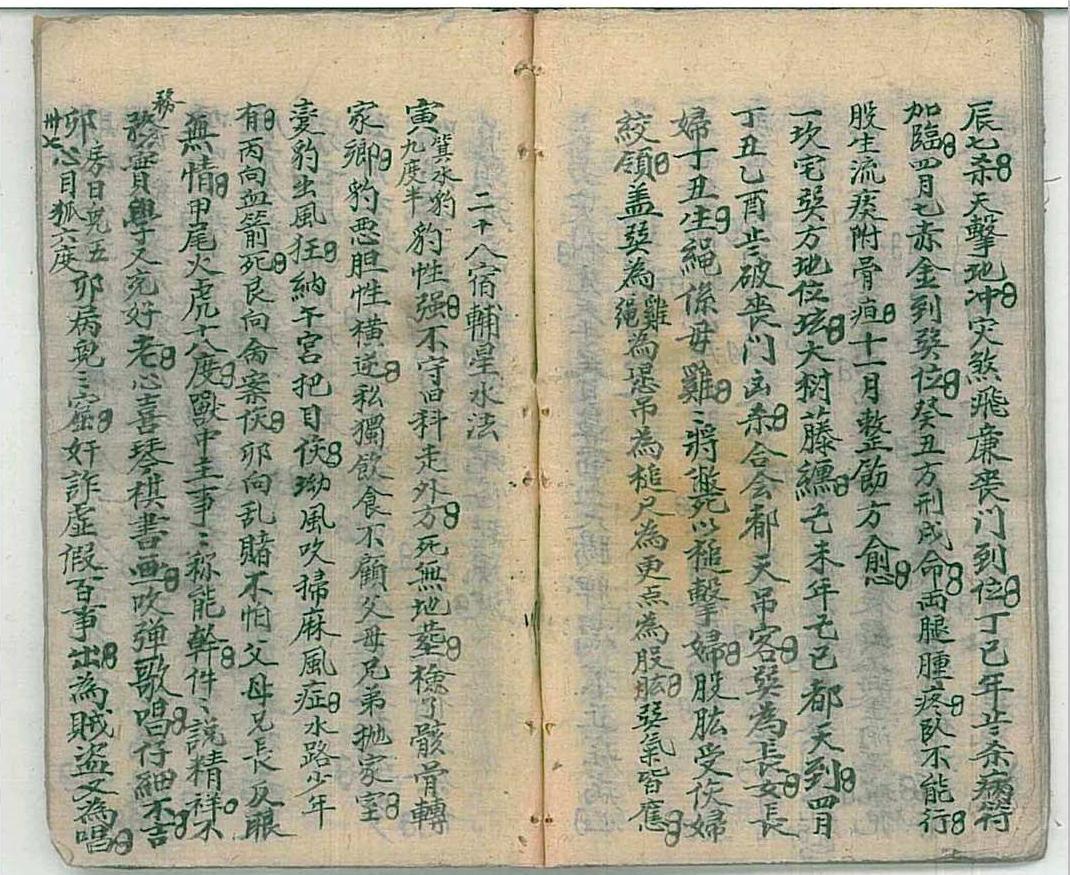 辰七杀天擊地冲灾煞飛廉喪门到位丁巳年歩杀病符
加臨四月七赤金到癸位癸丑方刑戌命両腿腫疼臥不能行
股生流痰附骨疽十一月整飭方愈
一坎宅癸方地位坟大树藤纒乞未年乞巳都天到四月
丁丑乙酉歩破喪门凶杀合会都天吊客癸為長女長
婦丁丑生繩係母雞〻将斃死以槌擊婦股肱受伕婦
絞領盖巽為雞繩為愚吊為槌尺為更点為股肱巽氣皆應
二十八宿輔星水法
寅箕水豹九度半豹性强不守旧科走外方死無地塟檢了骸骨轉
家鄉豹悪胆性横逆私獨飲食不顧父母兄弟抛家室
変豹出風狂納午宮把目伕坳風吹掃麻風症水路少年
有丙向血箭死艮向侖案伕卯向乱賭不怕父母兄長反眼
無情甲尾火虎十八度獸中主事〻称能幹件〻說精祥不
務實學又兖好老心喜琴棋書画吹弹歌唱仔細不吉
卯房日兎五卅七心目狐六度卯病兎〻窟奸詐虚假百事出為賊盗又為唱